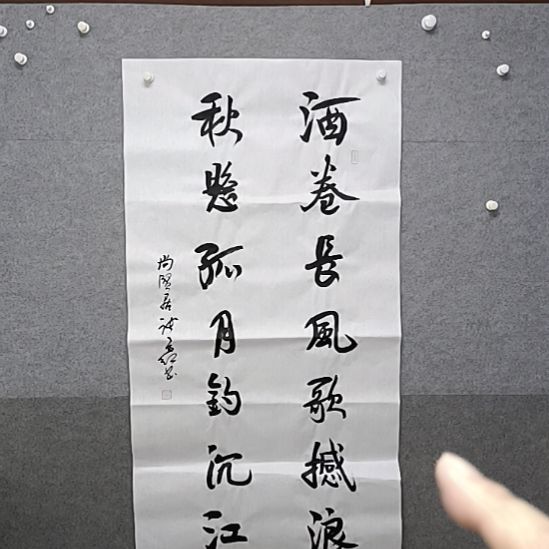 酒卷長風歌撼浪
秋懸孤月釣沉江
尚賢居